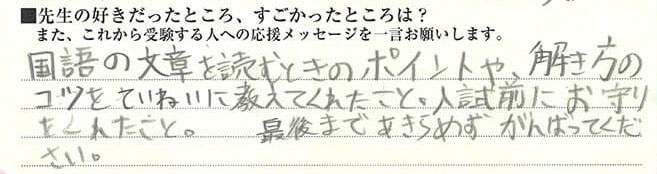 ■先生の好きだったところ、すごかったところは？
また、これから受験する人への応援メッセージを一言お願いします。
国語の文章を読むときのポイントや、解き方の
コツをていねいに教えてくれたこと。入試前にお守り
をくれたこと。　最後まであきらめずがんばってくだ
さい。